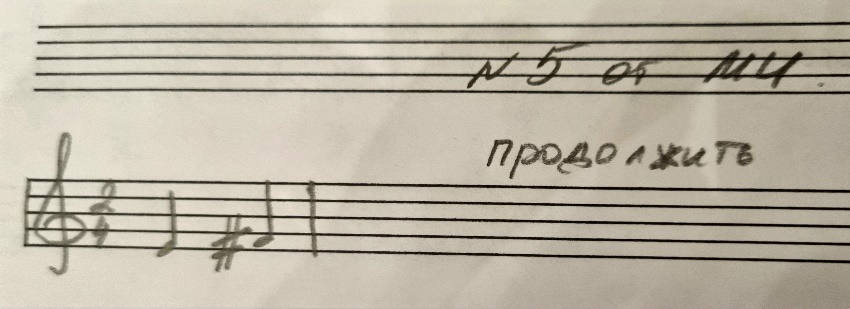 N 5 от МИ.
продолжить
2
4